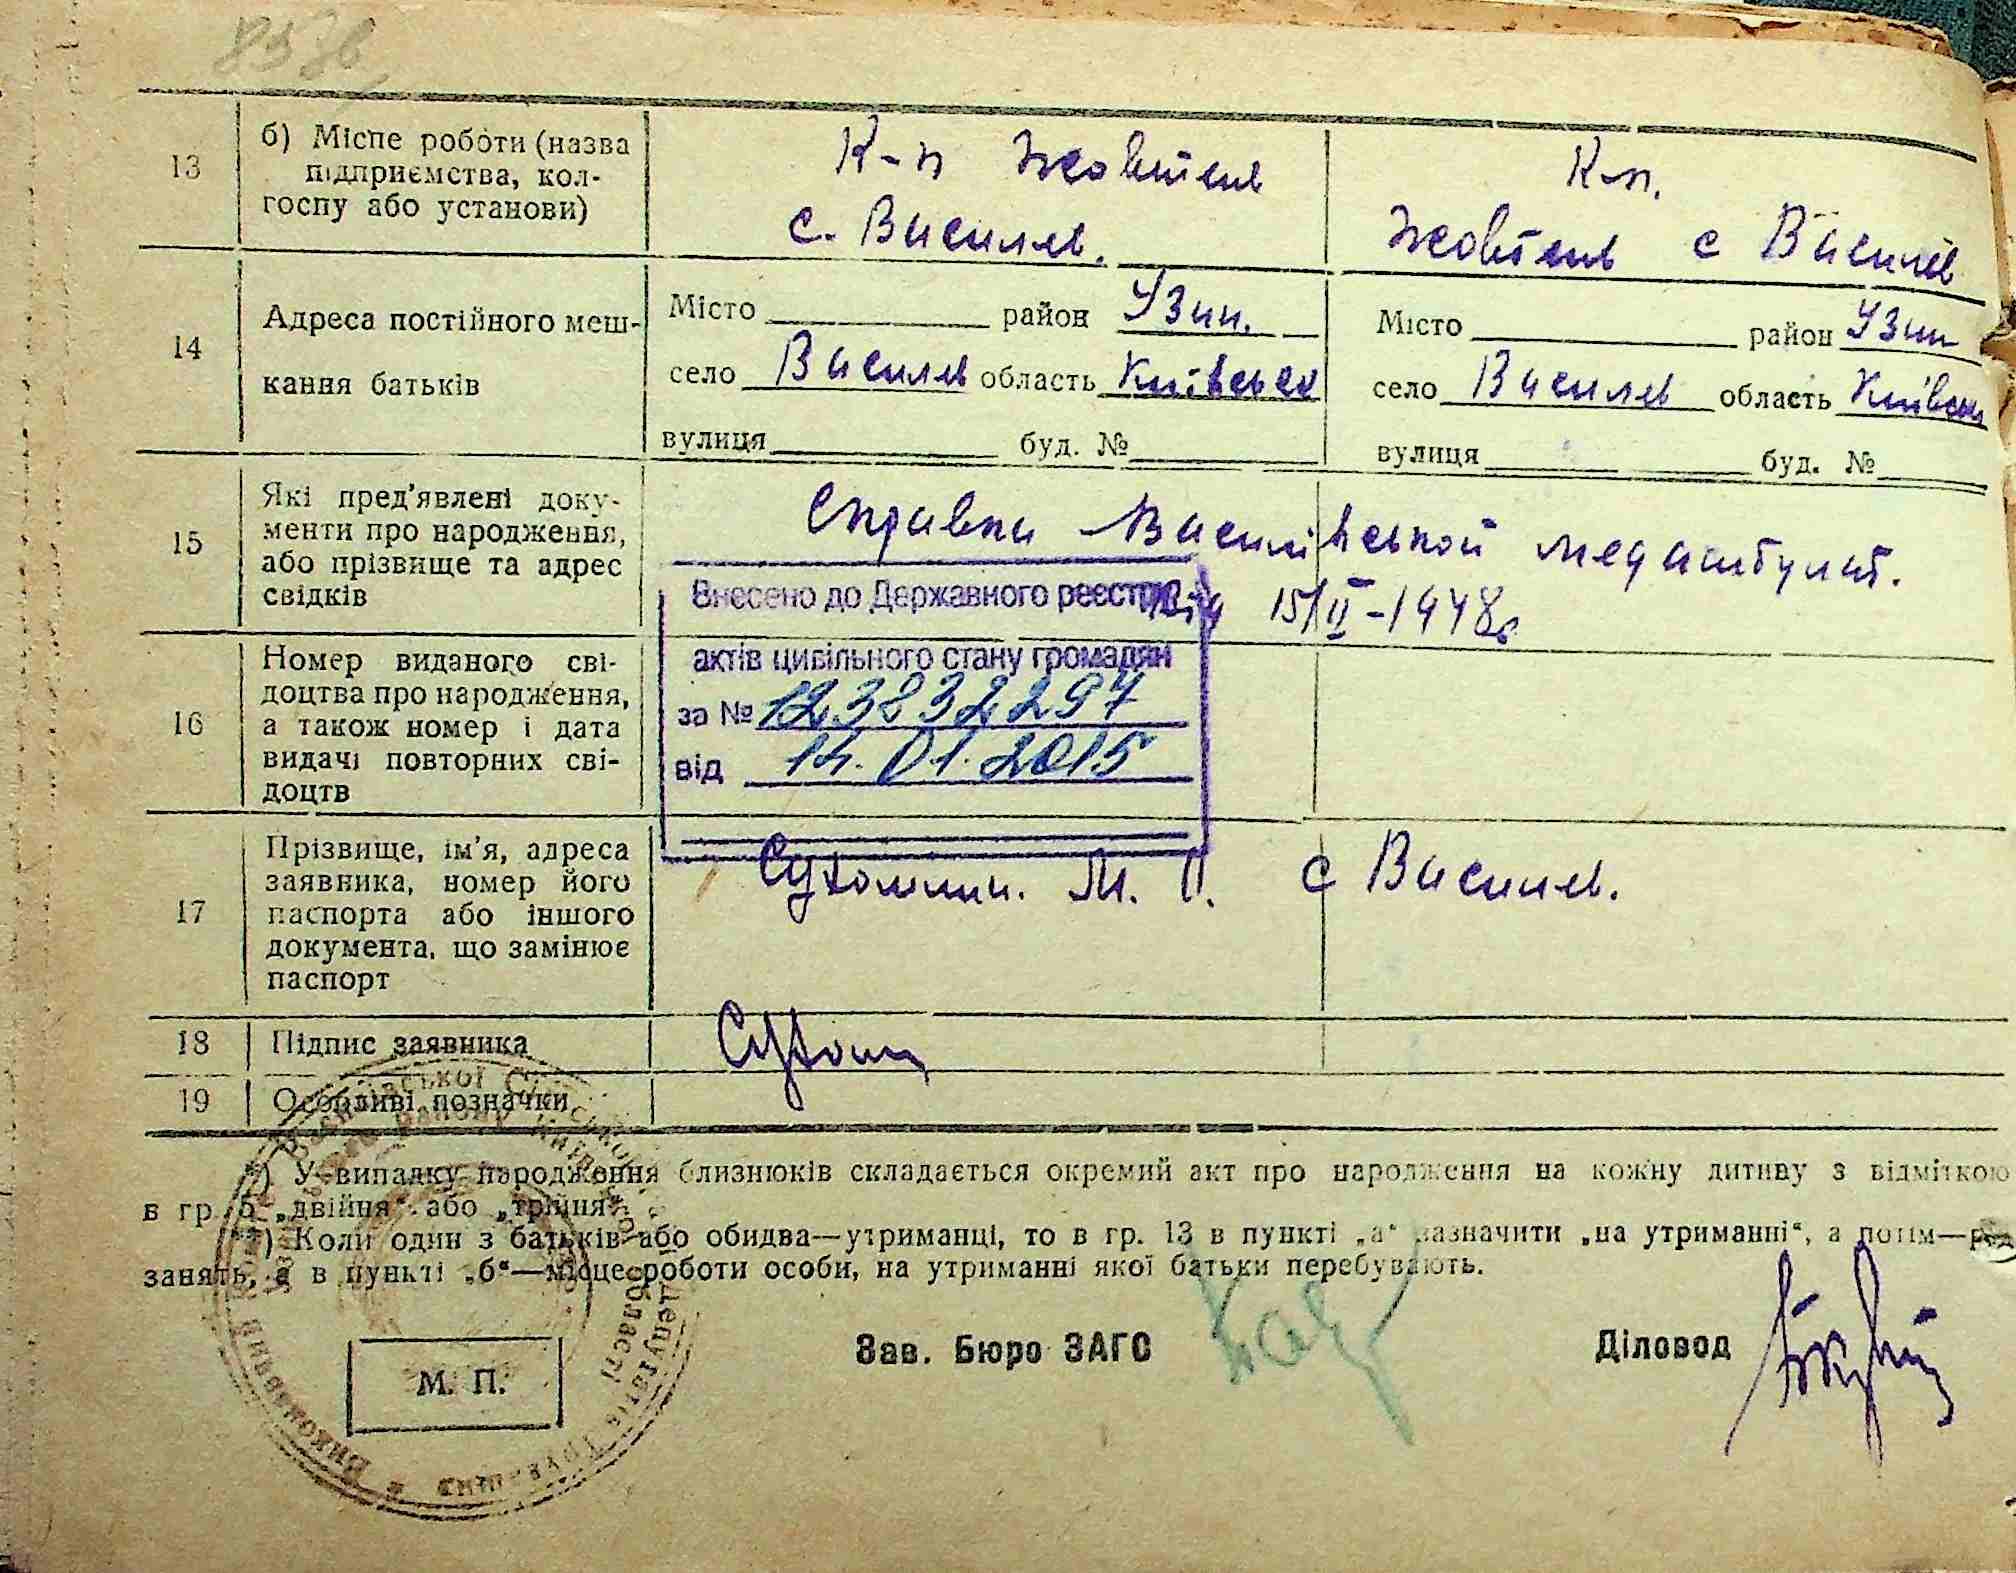 13
б) Місце роботи (назва
підприємства, кол-
госпу або установи)
К-п Жовтень
с. Василев.
К-п.
Жовтень с Василев
14
Адреса постійного меш-
кання батьків
Місто район Узин.
село Василев область Київськ
вулиця буд. №
Місто район Узин
село Василев область Київськ
вулиця буд. №
15
Які пред'явлені доку-
менти про народження,
або прізвище та адрес
свідків
Справка Василівської медамбулат.
від 15/II-1948г
Внесено до Державного реєстру
актів цивільного стану громадян
за №
від 14.01.2015
16
Номер виданого сві-
доцтва про народження,
а також номер і дата
видачі повторних сві-
доцтв
17
Прізвище, ім'я, адреса
заявника, номер його
паспорта або іншого
документа, що замінює
паспорт
Сухомлин. М. П. с Василев.
18
Підпис заявника
Сухомл
19
Особливі позначки
*) У випадку народження близнюків складається окремий акт про народження на кожну дитину з відміткою
в гр. 5 „двійня“ або „трійня“.
**) Коли один з батьків або обидва—утриманці, то в гр. 13 в пункті „а“ зазначити „на утриманні“, а потім—рід
занять, а в пункті „б“—місце роботи особи, на утриманні якої батьки перебувають.
М. П.
Зав. Бюро ЗАГС
Діловод